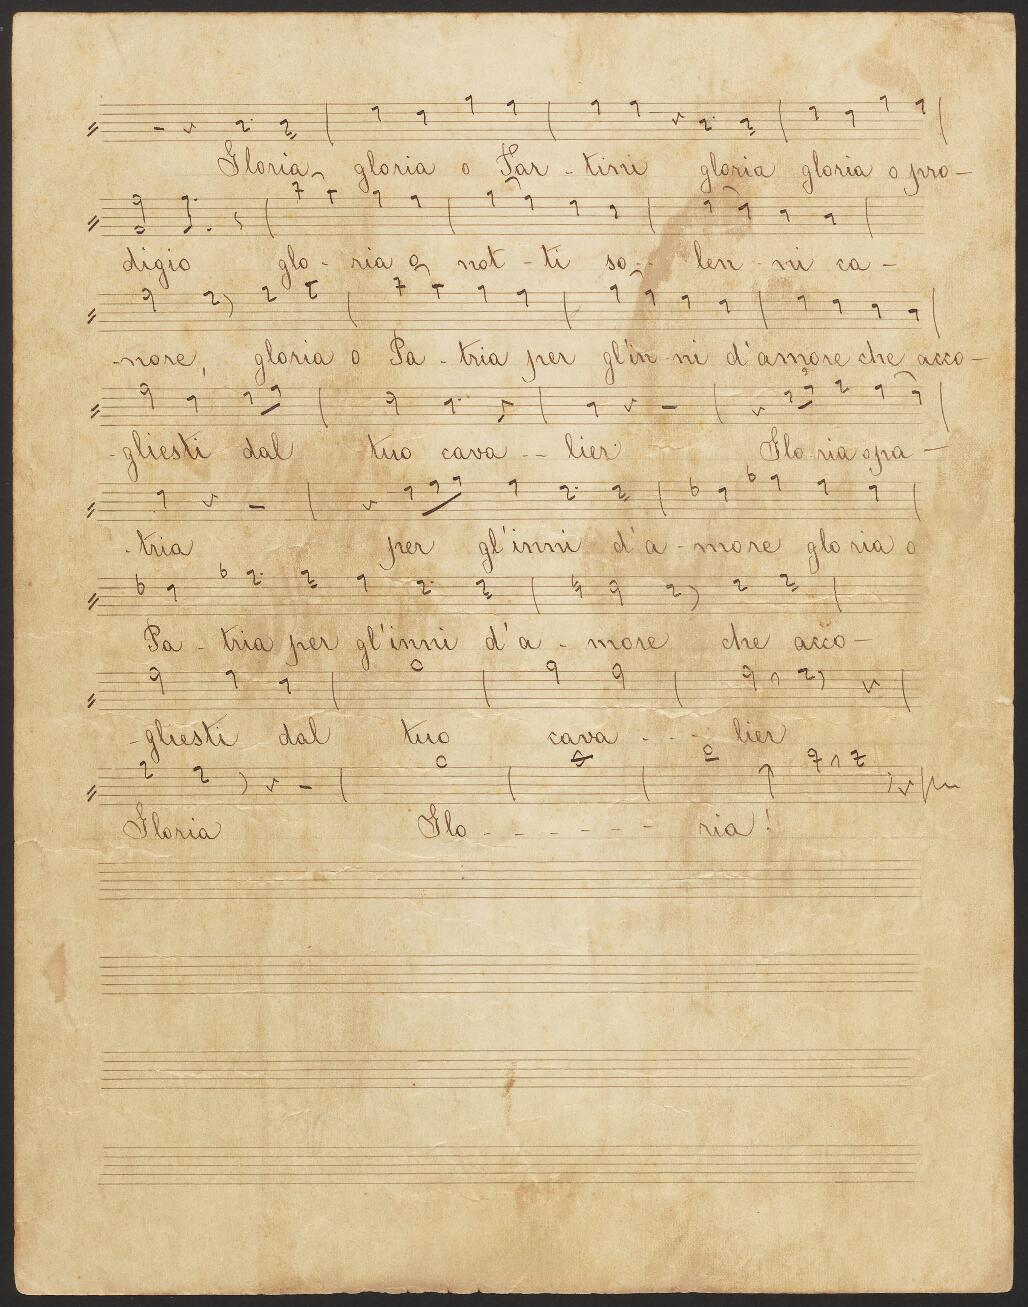 Gloria, gloria o Tar - tini gloria gloria o pro -
digio glo - ria o not - ti so - len - ni ca -
- nore, gloria o Pa - tria per gl'in - ni d'amore che acco -
- gliesti dal tuo cava - - lier Glo - ria o pa -
- tria per gl'inni d'a - more gloria o
Pa - tria per gl'inni d'a - more che acco -
- gliesti dal tuo cava - - - lier
Gloria Glo - - - - - - - ria!